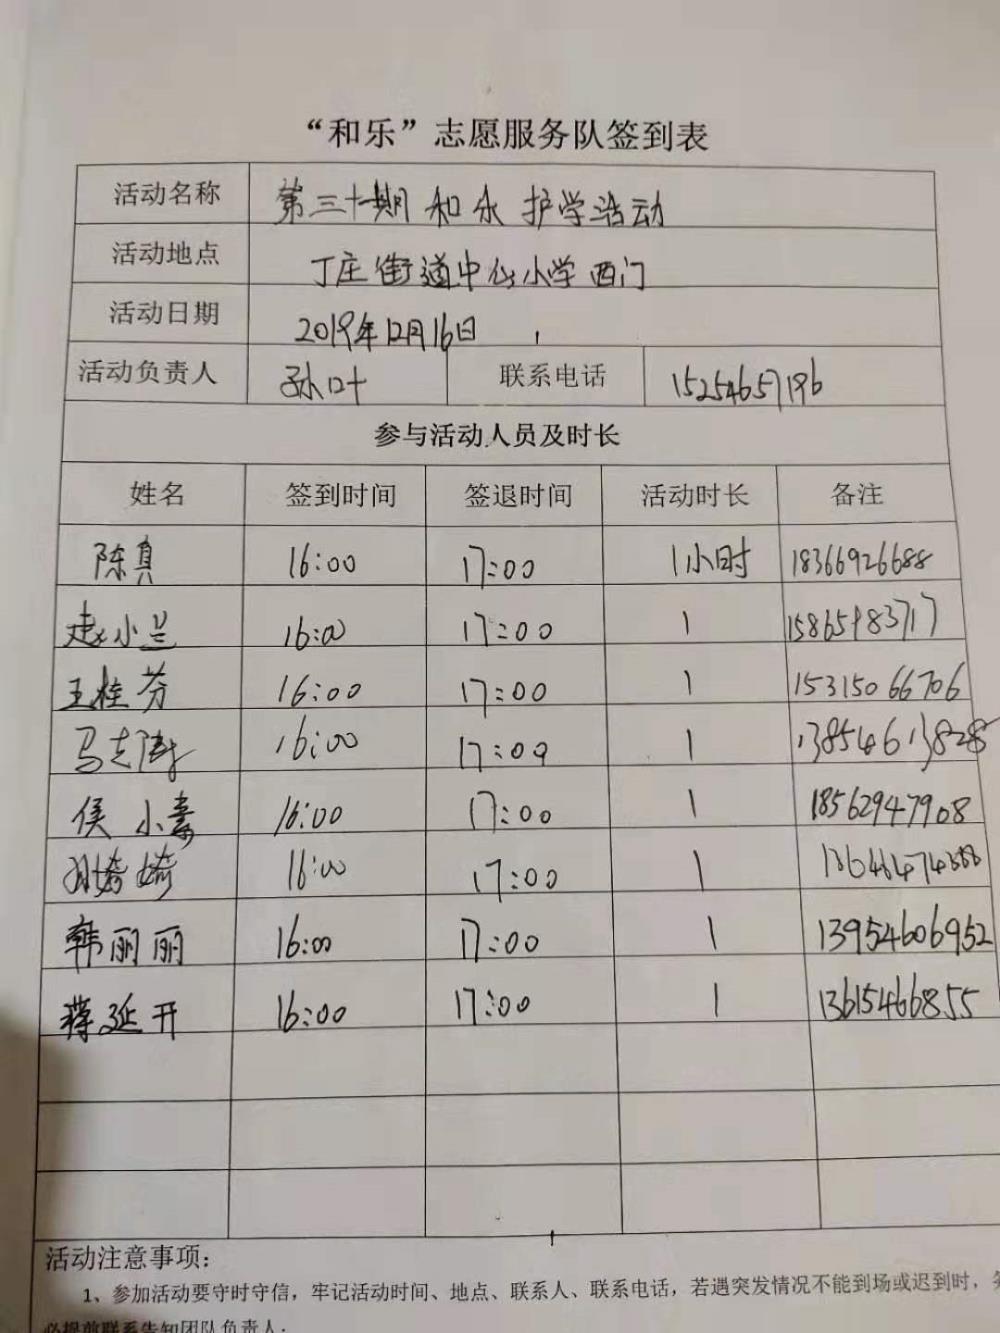 “和乐”志愿服务队签到表
活动名称 第三十一期 和乐 护学活动
活动地点 丁庄街道中心小学西门
活动日期 2019年12月16日
活动负责人 孙叶 联系电话 15254657196
参与活动人员及时长
姓名 签到时间 签退时间 活动时长 备注
陈真 16:00 17:00 1小时 18366926688
赵小兰 16:00 17:00 1 15865983717
王桂芬 16:00 17:00 1 15315066706
马志 16:00 17:00 1 13854613828
侯小素 16:00 17:00 1 18562947908
16:00 17:00 1
韩丽丽 16:00 17:00 1 13954606952
蒋延开 16:00 17:00 1 13615466855
活动注意事项：
1、参加活动要守时守信，牢记活动时间、地点、联系人、联系电话，若遇突发情况不能到场或迟到时，务
必提前联系告知团队负责人；